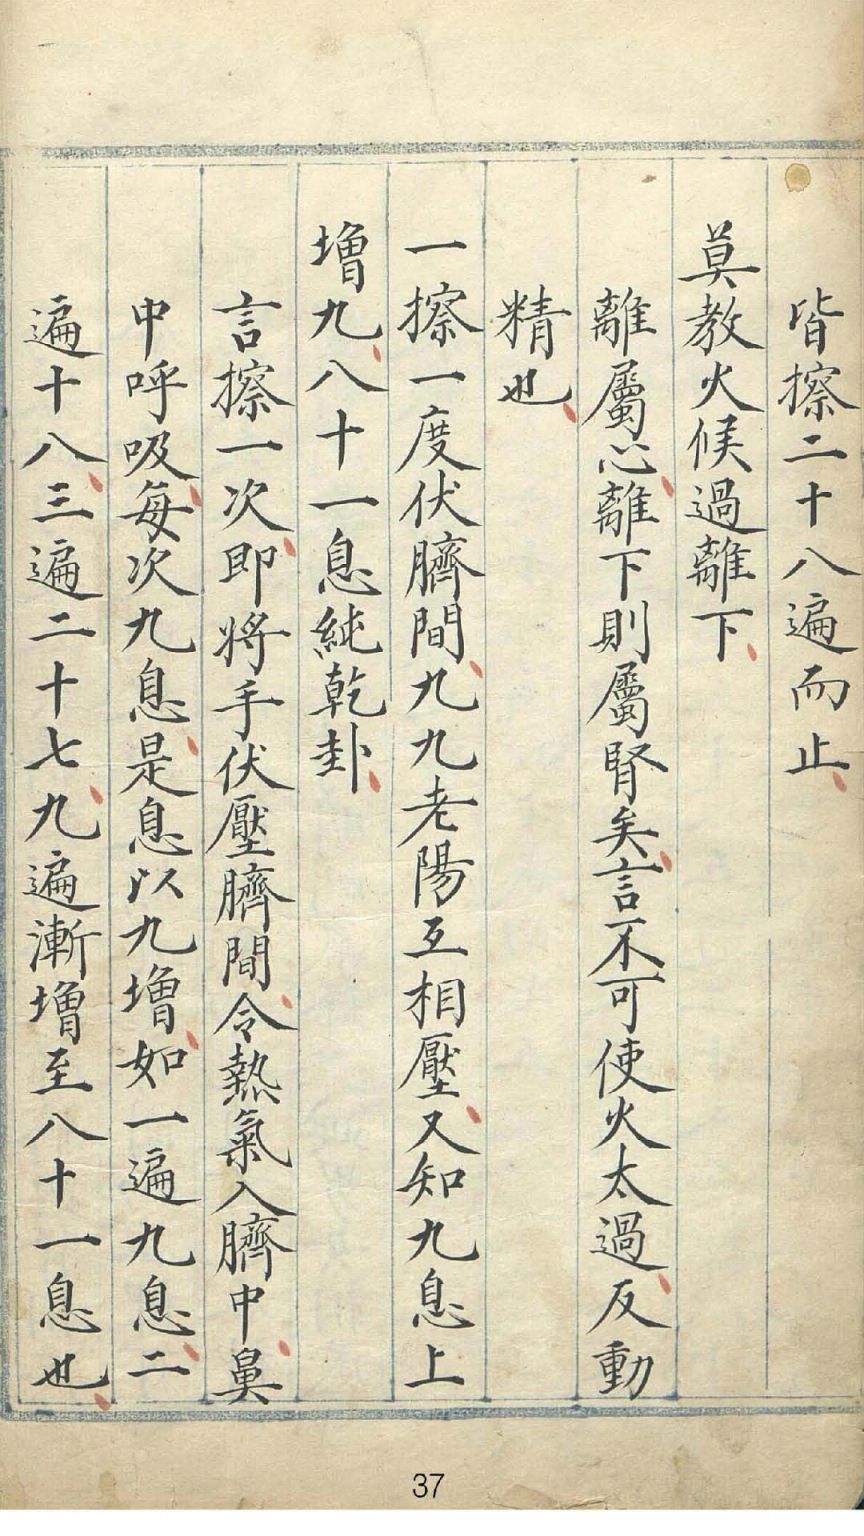 皆擦二十八遍而止
莫教火候過離下
離屬心離下則屬腎矣言不可使火太過反動
精也
一擦一度伏臍間九九老陽互相壓又知九息上
增九八十一息純乾卦
言擦一次即將手伏壓臍間令熱氣入臍中鼻
中呼吸每次九息是息以九增如一遍九息二
遍十八三遍二十七九遍漸增至八十一息也
37